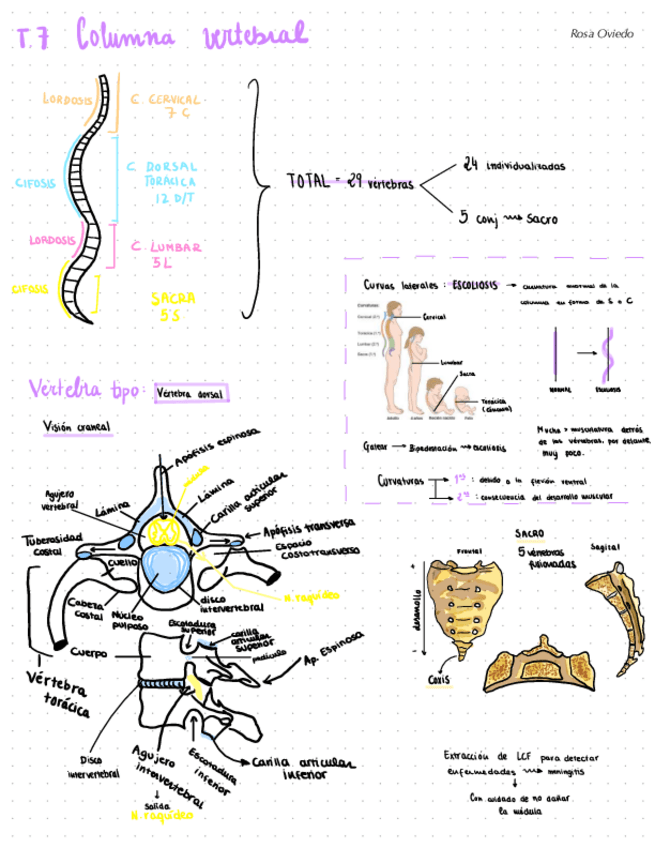 T.7 Columna vertebral
Rosa Oviedo
LORDOSIS
C. CERVICAL
7 C
CIFOSIS
C. DORSAL
TORACICA
12 D/T
LORDOSIS
C. LUMBAR
5L
CIFOSIS
SACRA
5 S
TOTAL = 29 vértebras
24 individualizadas
5 conj → Sacro
Curvas laterales: ESCOLIOSIS → curvatura anormal de la
columna en forma de S o C
Cervical
Lumbar
Sacra
Torácica
NORMAL
ESCOLIOSIS
Gatear → Bipedestación → escoliosis
Mucha > musculatura detrás
de las vértebras, por delante
muy poco.
Curvaturas
1ª : debido a la flexión ventral
2ª : consecuencia del desarrollo muscular
Vértebra tipo: Vértebra dorsal
Visión craneal
Apófisis espinosa
Agujero
vertebral
Lámina
Lámina
Carilla articular
superior
Tuberosidad
costal
Apófisis transversa
Espacio
costotransverso
Cuello
Cabeza
costal
Núcleo
pulposo
disco
intervertebral
N. raquídeo
Escotadura
superior
carilla
articular
superior
Cuerpo
pedículo
Ap. Espinosa
Vértebra
torácica
Disco
intervertebral
Agujero
intervertebral
Escotadura
inferior
Carilla articular
inferior
Salida
N. raquídeo
SACRO
5 vértebras
fusionadas
Frontal
Sagital
desarrollo
Coxis
Extracción de LCF para detectar
enfermedades → meningitis
Con cuidado de no dañar
la médula